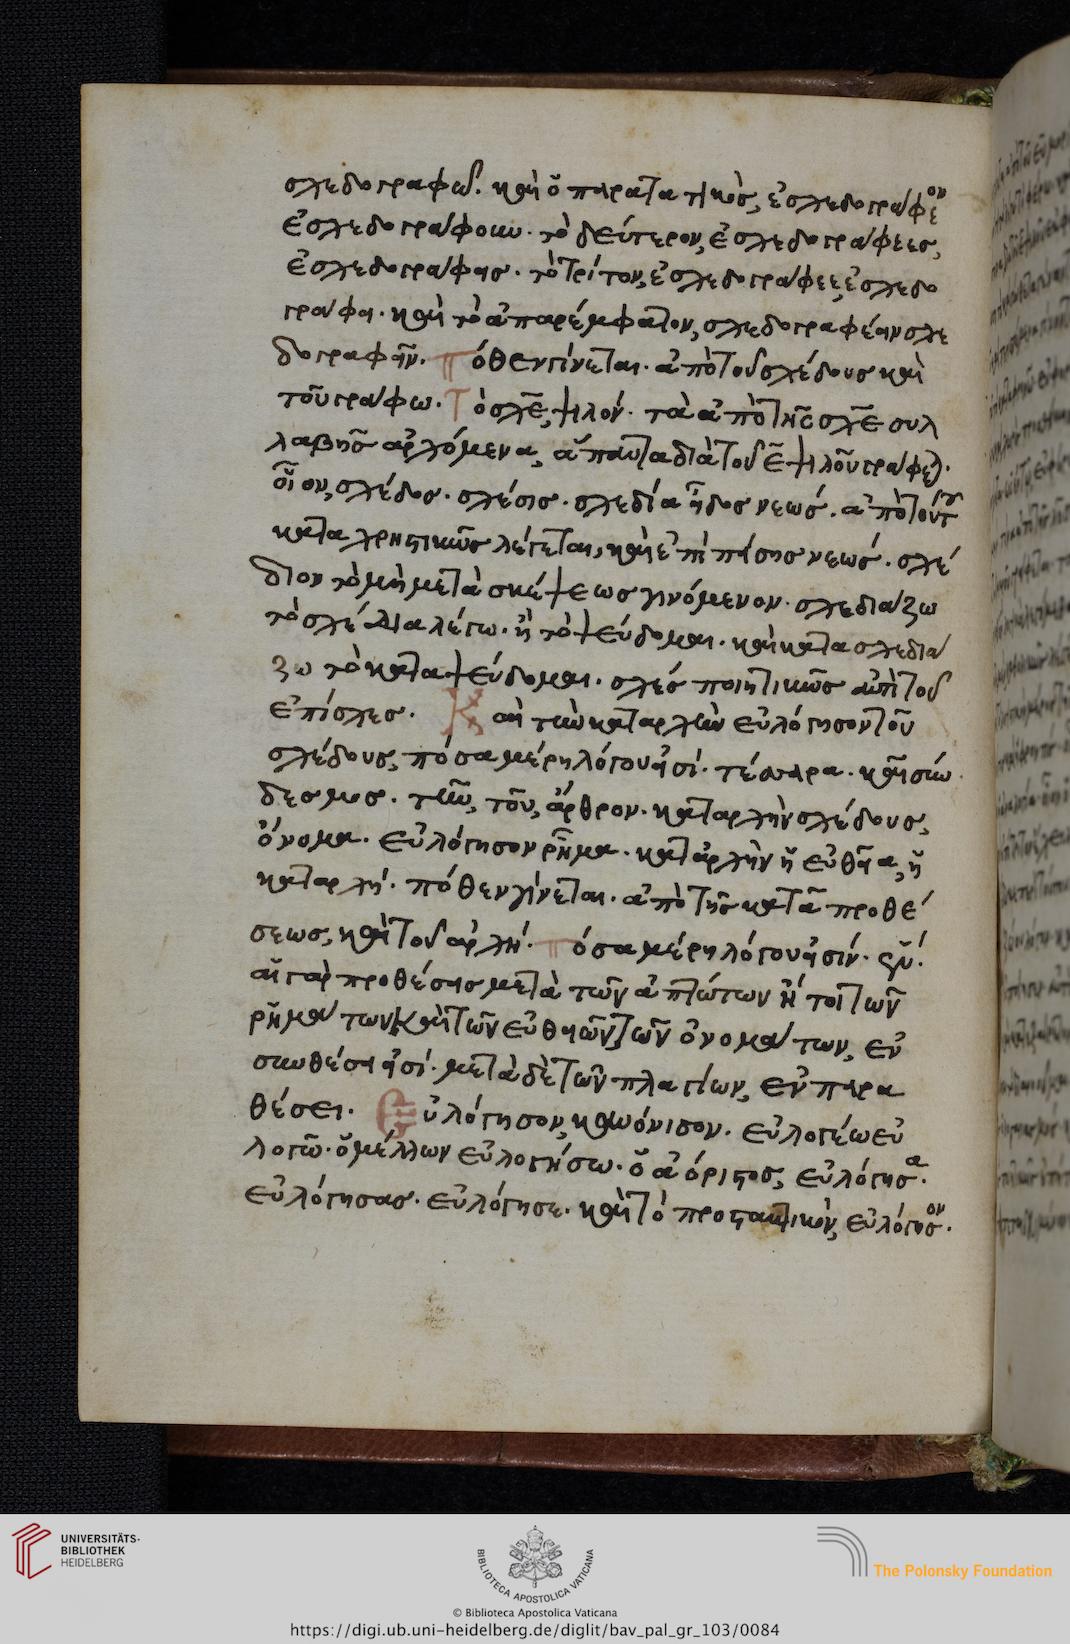 σχεδογραφῶ. καὶ ὁ παρατατικὸς, ἐσχεδογράφεον
ἐσχεδογράφουν. τὸ δεύτερον, ἐσχεδογράφεες,
ἐσχεδογράφεις. τὸ τρίτον, ἐσχεδογράφεε, ἐσχεδο
γράφει. καὶ τὸ ἀπαρέμφατον, σχεδογραφέειν σχε
δογραφεῖν. Πόθεν γίνεται. ἀπὸ τοῦ σχέδους καὶ
τοῦ γράφω. Τὸ σχε, ψιλόν. τὰ ἀπὸ τῆς σχε συλ
λαβῆς ἀρχόμενα, ἅπαντα διὰ τοῦ ε ψιλοῦ γράφεται.
οἷον, σχέδος. σχέσις. σχεδία εἶδος νεώς. ἀπὸ τούτου
καταχρηστικῶς λέγεται, καὶ ἐπὶ πάσης νεώς. σχέ
διον τὸ μὴ μετὰ σκέψεως γινόμενον. σχεδιάζω
τὸ σχέδια λέγω. ἢ τὸ ψεύδομαι. καὶ κατασχεδιά
ζω τὸ καταψεύδομαι. σχές ποιητικῶς ἀντὶ τοῦ
ἐπίσχες. Καὶ τὴν καταρχὴν εὐλόγησον τοῦ
σχέδους, πόσα μέρη λόγου εἰσί. τέσσαρα. καὶ σύν
δεσμος. τὴν, τοῦ, ἄρθρον. καταρχὴν σχέδους,
ὄνομα. εὐλόγησον ῥῆμα. καταρχὴν ἡ εὐθεῖα, ἡ
καταρχή. πόθεν γίνεται. ἀπὸ τῆς κατὰ προθέ
σεως, καὶ τοῦ ἀρχή. Πόσα μέρη λόγου εἰσίν.
αἱ γὰρ προθέσεις μετὰ τῶν ἀπτώτων ἤτοι τῶν
ῥημάτων καὶ τῶν εὐθειῶν τῶν ὀνομάτων, ἐν
συνθέσει εἰσί. μετὰ δὲ τῶν πλαγίων, ἐν παρα
θέσει. Εὐλόγησον, κανόνισον. εὐλογέω εὐ
λογῶ. ὁ μέλλων εὐλογήσω. ὁ ἀόριστος, εὐλόγησα.
εὐλόγησας. εὐλόγησε. καὶ τὸ προστακτικὸν, εὐλόγησον.
UNIVERSITÄTS-
BIBLIOTHEK
HEIDELBERG
BIBLIOTECA APOSTOLICA VATICANA
The Polonsky Foundation
© Biblioteca Apostolica Vaticana
https://digi.ub.uni-heidelberg.de/diglit/bav_pal_gr_103/0084